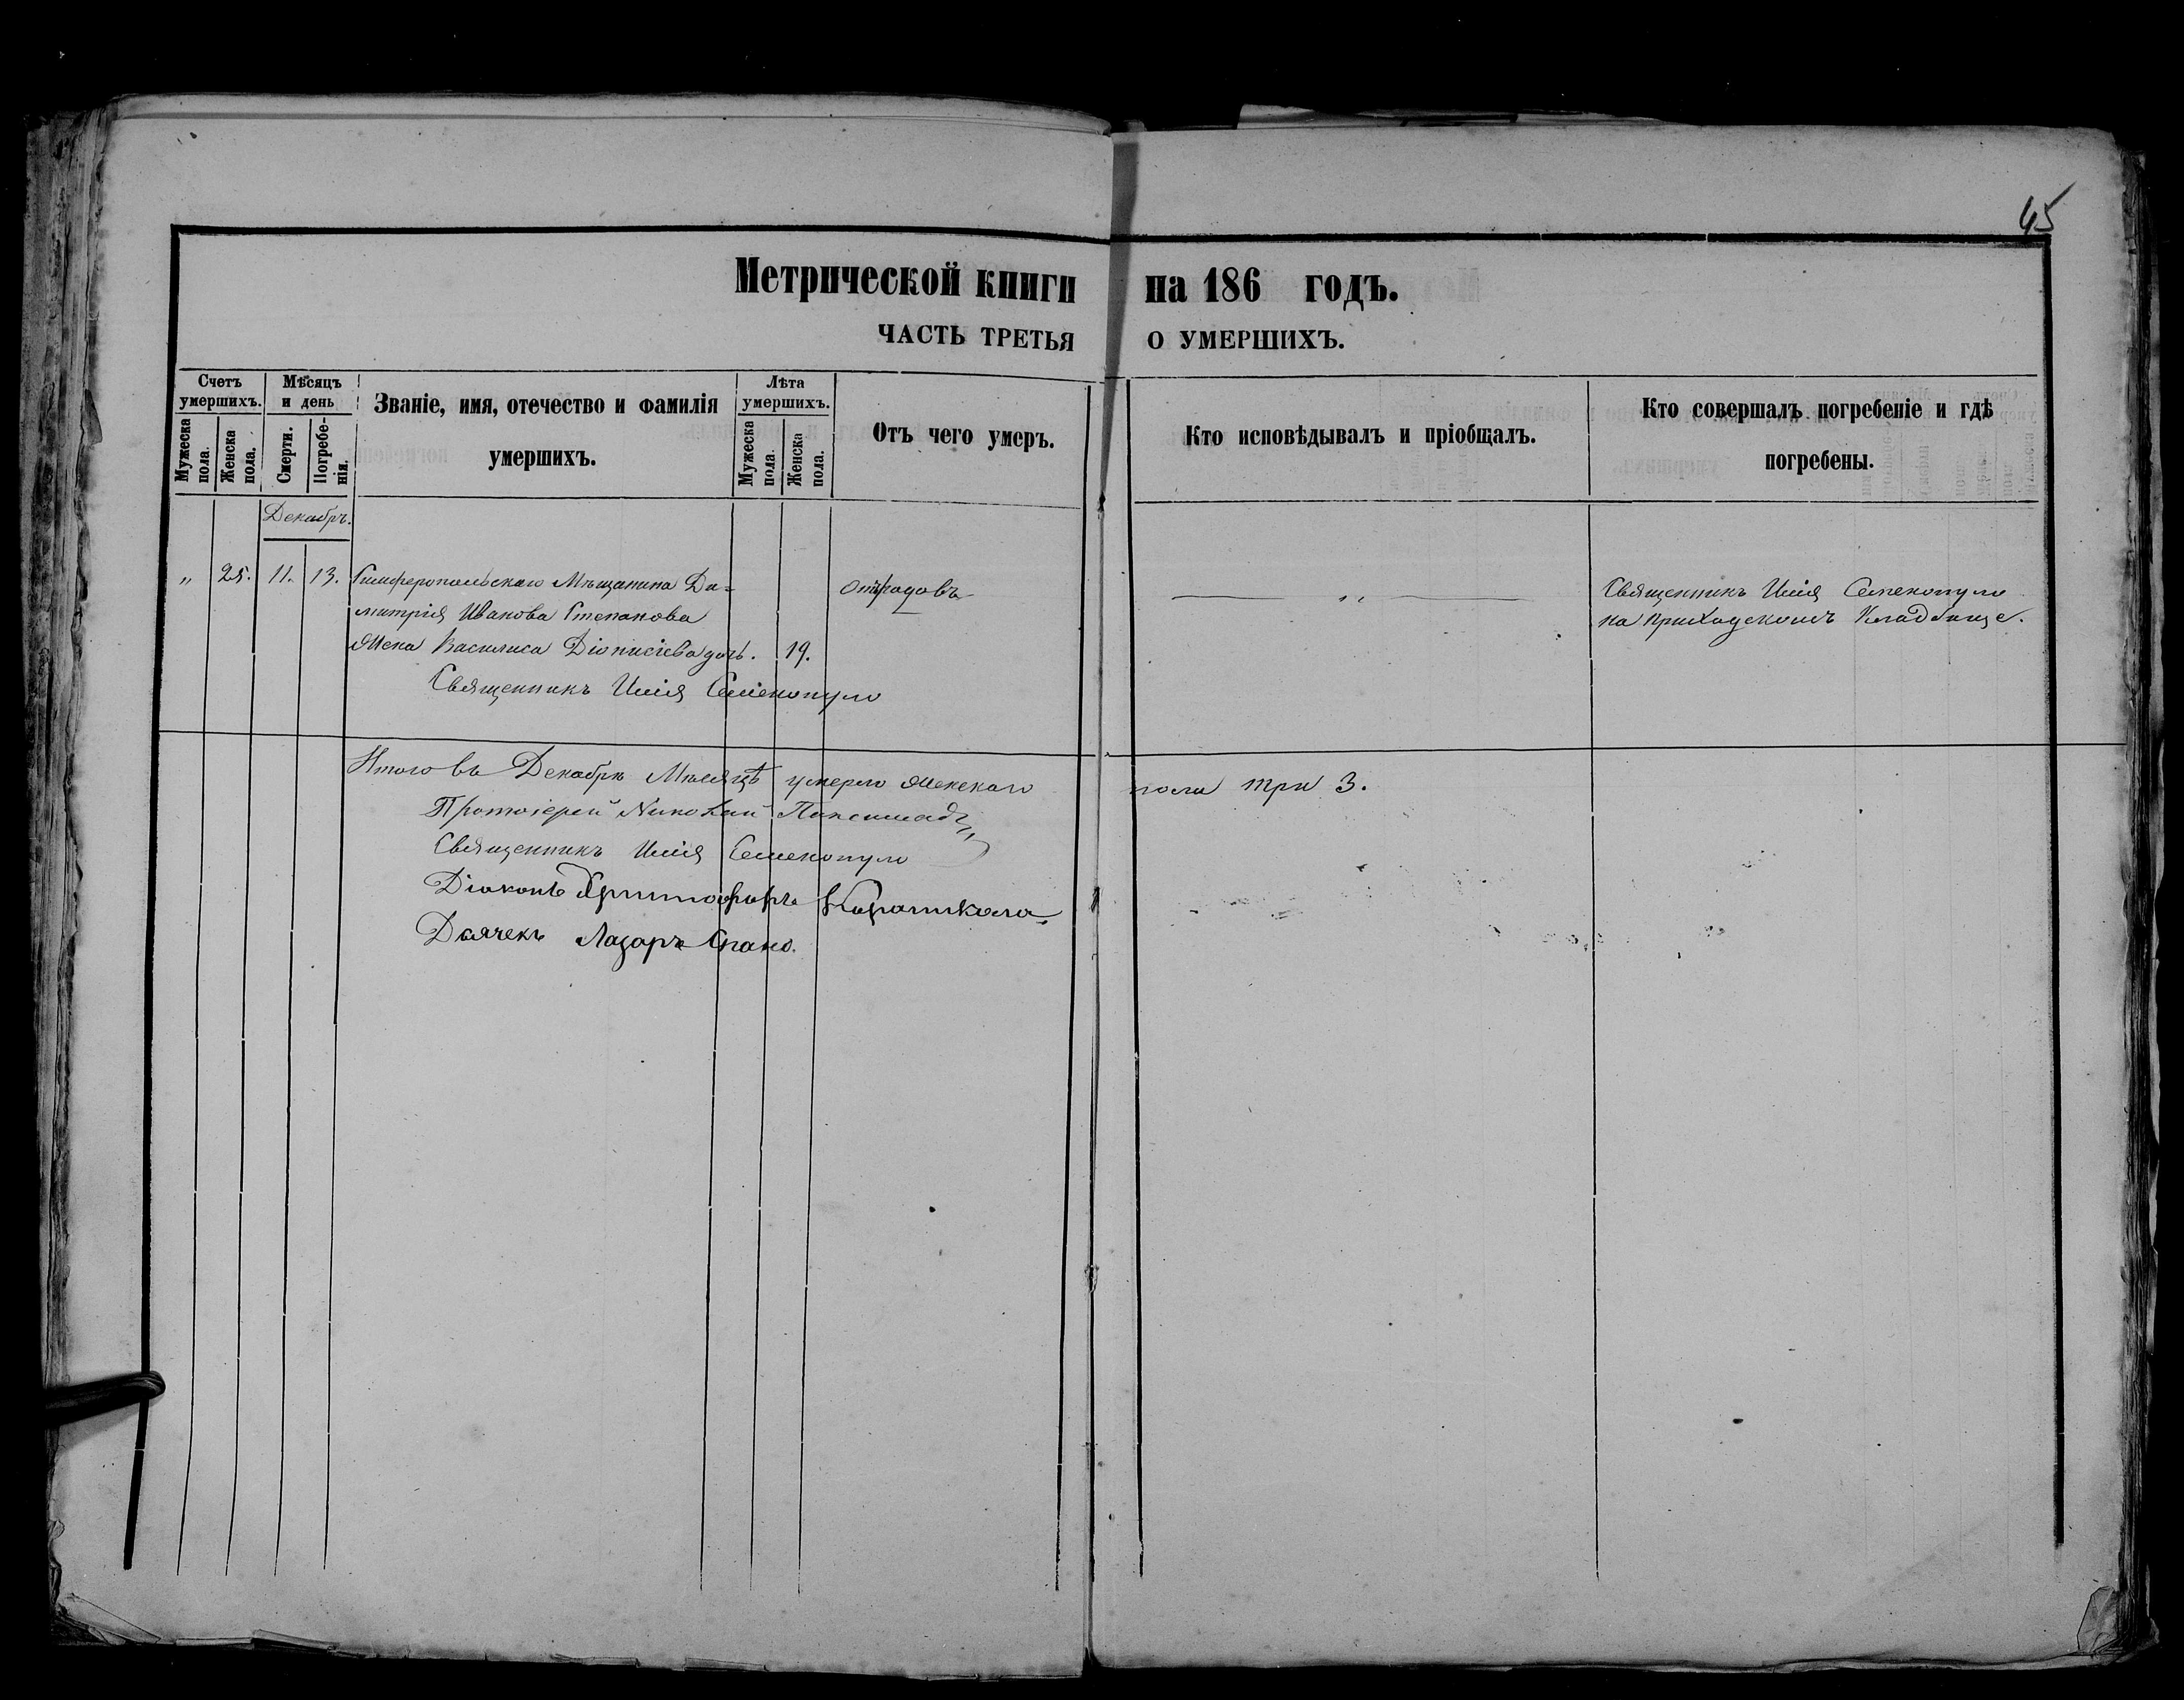 45
Метрической книги на 186 годъ.
ЧАСТЬ ТРЕТЬЯ О УМЕРШИХЪ.
Счетъ умершихъ.
Мужеска пола.
Женска пола.
Мѣсяцъ и день
Смерти.
Погребенія.
Званіе, имя, отечество и фамилія умершихъ.
Лѣта умершихъ.
Мужеска пола.
Женска пола.
Отъ чего умеръ.
Кто исповѣдывалъ и пріобщалъ.
Кто совершалъ погребеніе и гдѣ погребены.
Декабрь.
„ 25. 11. 13. Симферопольскаго Мѣщанина Ди=
митрія Иванова Степанова
жена Василиса Діонисіева дочь. 19.
отъ родовъ
„
Священникъ Илія Семенопуло
на приходскомъ Кладбище.
Священникъ Илія Семенопуло
Итого въ Декабрѣ Мѣсяцѣ умерло женскаго пола три 3.
Протоіерей Николай
Священникъ Илія Семенопуло
Діаконъ Христофоръ
Дьячекъ Лазарь Спано.